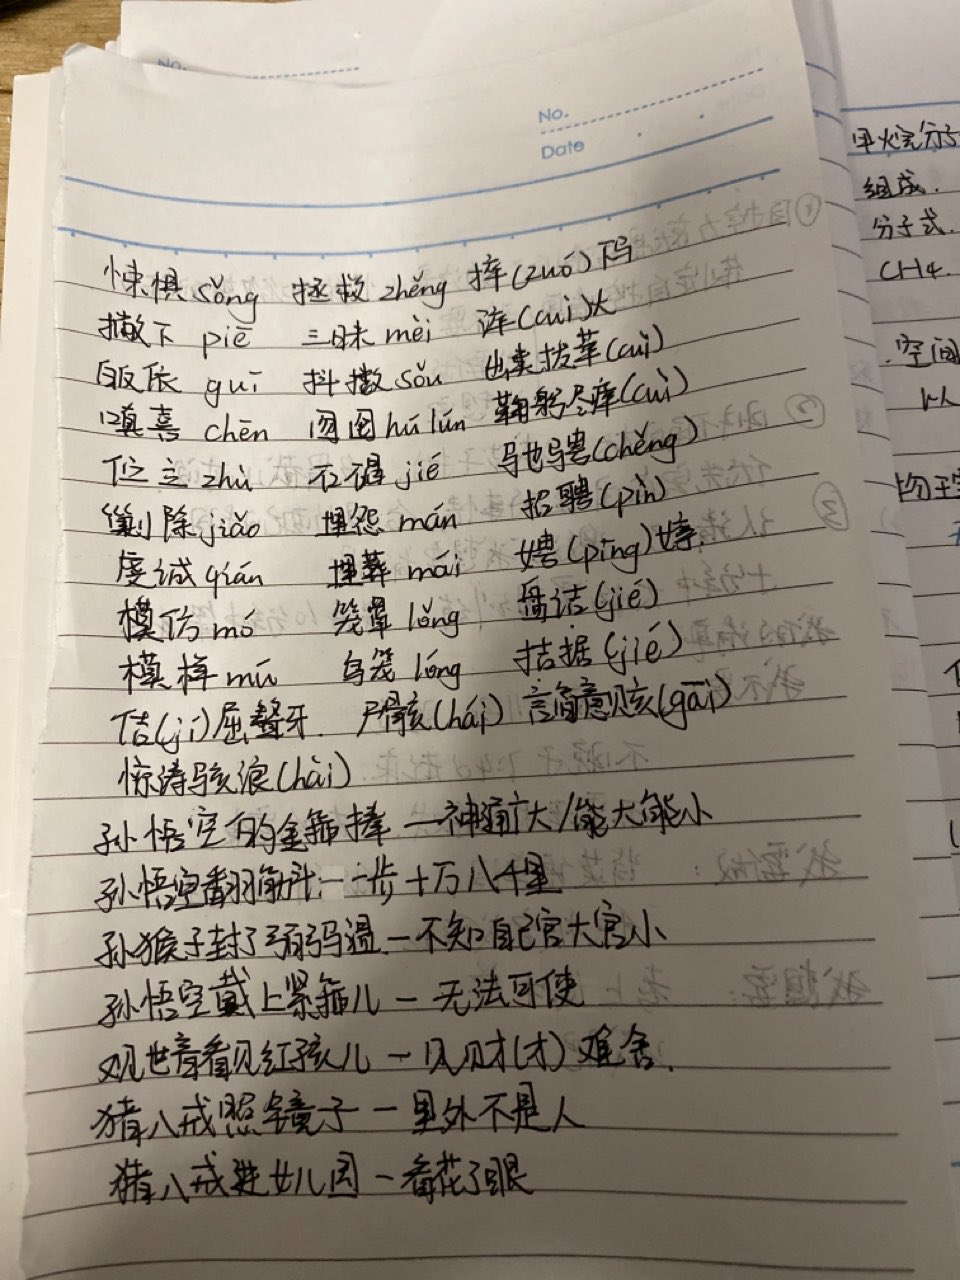 No.
No.
Date
悚惧 sǒng 拯救 zhěng 捽(zuó)下马
撇下 piē 三昧 mèi 淬(cuì)火
皈依 guī 抖擞 sǒu 出类拔萃(cuì)
嗔喜 chēn 囫囵 hú lún 鞠躬尽瘁(cuì)
伫立 zhù 不碍 jié 驰骋(chěng)
剿除 jiǎo 埋怨 mán 招聘(pìn)
虔诚 qián 埋葬 mái 娉(pīng)婷.
模仿 mó 笼罩 lǒng 盘诘(jié)
模样 mú 鸟笼 lóng 拮据(jié)
佶(jí)屈聱牙. 尸骸(hái) 言简意赅(gāi)
惊涛骇浪(hài)
孙悟空的金箍棒 — 神通广大/能大能小
孙悟空翻筋斗 — 一步十万八千里
孙猴子封了弼马温 — 不知自己官大官小
孙悟空戴上紧箍儿 — 无法可使
观世音看见红孩儿 — 见财(才)难舍.
猪八戒照镜子 — 里外不是人
猪八戒进女儿国 — 看花了眼
甲烷分子
组成.
分子式.
CH4.
空间
以人